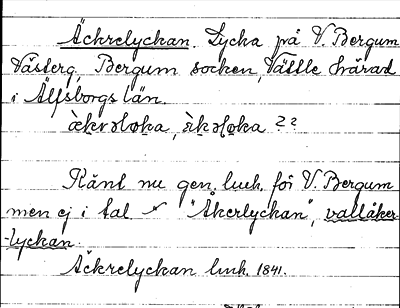 Äckrelyckan. Lycka på V. Bergum
Västerg, Bergum socken, Vättle härad
i Älfsborgs län.
ὲkrəlɷka, ὲkəlɷka ??
Känt nu gen. luch. för V. Bergum
men ej i tal. "Åkerlyckan", vallåker-
lyckan.
Äckrelyckan luch. 1841.